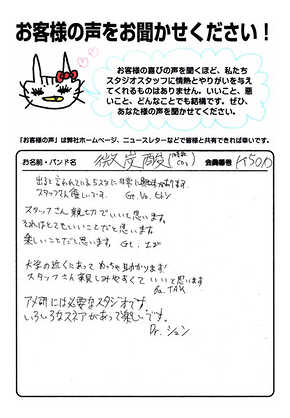 お客様の声をお聞かせください！
お客様の喜びの声を聞くほど、私たち
スタジオスタッフに情熱とやりがいを与え
てくれるものはありません。いいこと、悪
いこと、どんなことでも結構です。ぜひ、
あなた様の声を聞かせてください。
「お客様の声」は弊社ホームページ、ニュースレターなどで皆様と共有できれば幸いです。
お名前・バンド名 微炭酸 会員番号
出ると言われている
スタッフさん優しいです。 Gt. Vo.
スタッフさん親切でいいと思います。
それはとてもいいことだと思います。
楽しいことだと思います。 Gt.
大学の近くにあって めっちゃ助かります!
スタッフさん親しみやすくて いいと思います
Ba. TAK
アメ研には必要なスタジオです。
いろいろなスネアがあって楽しいです。
Dr. ション